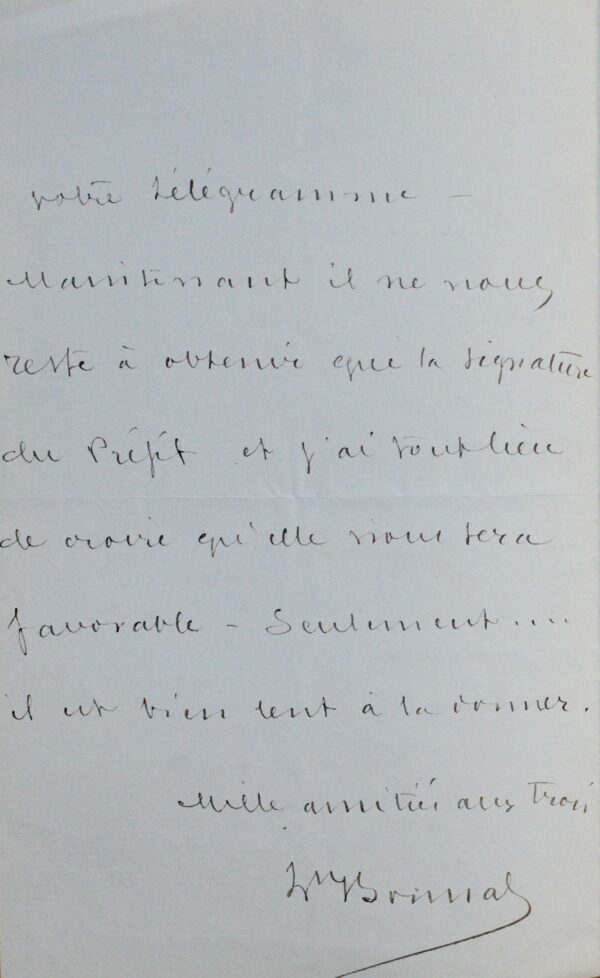 votre télégramme –
Maintenant il ne nous
reste à obtenir que la signature
du Préfet et j'ai tout lieu
de croire qu'elle nous sera
favorable – Seulement....
il est bien lent à la donner.
Mille amitiés aux trois
Bonnal